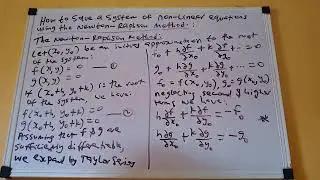 How to Solve a System of non-linear equations
using the Newton-Raphson method:
The Newton-Raphson Method:
Let (x₀, y₀) be an initial approximation to the root
of the System
f(x,y) = 0
g(x,y) = 0
if (x₀+h, y₀+k) is the root
of the System we have:
f(x₀+h, y₀+k) = 0
g(x₀+h, y₀+k) = 0
Assuming that f & g are
Sufficiently differentiable,
we expand by Taylor Series
f₀ + h ∂f/∂x₀ + k ∂f/∂y₀ + ⋯ = 0
g₀ + h ∂g/∂x₀ + k ∂g/∂y₀ + ⋯ = 0
neglecting second & higher
terms we have:
h ∂f/∂x₀ + k ∂f/∂y₀ = -f₀
h ∂g/∂x₀ + k ∂g/∂y₀ = -g₀